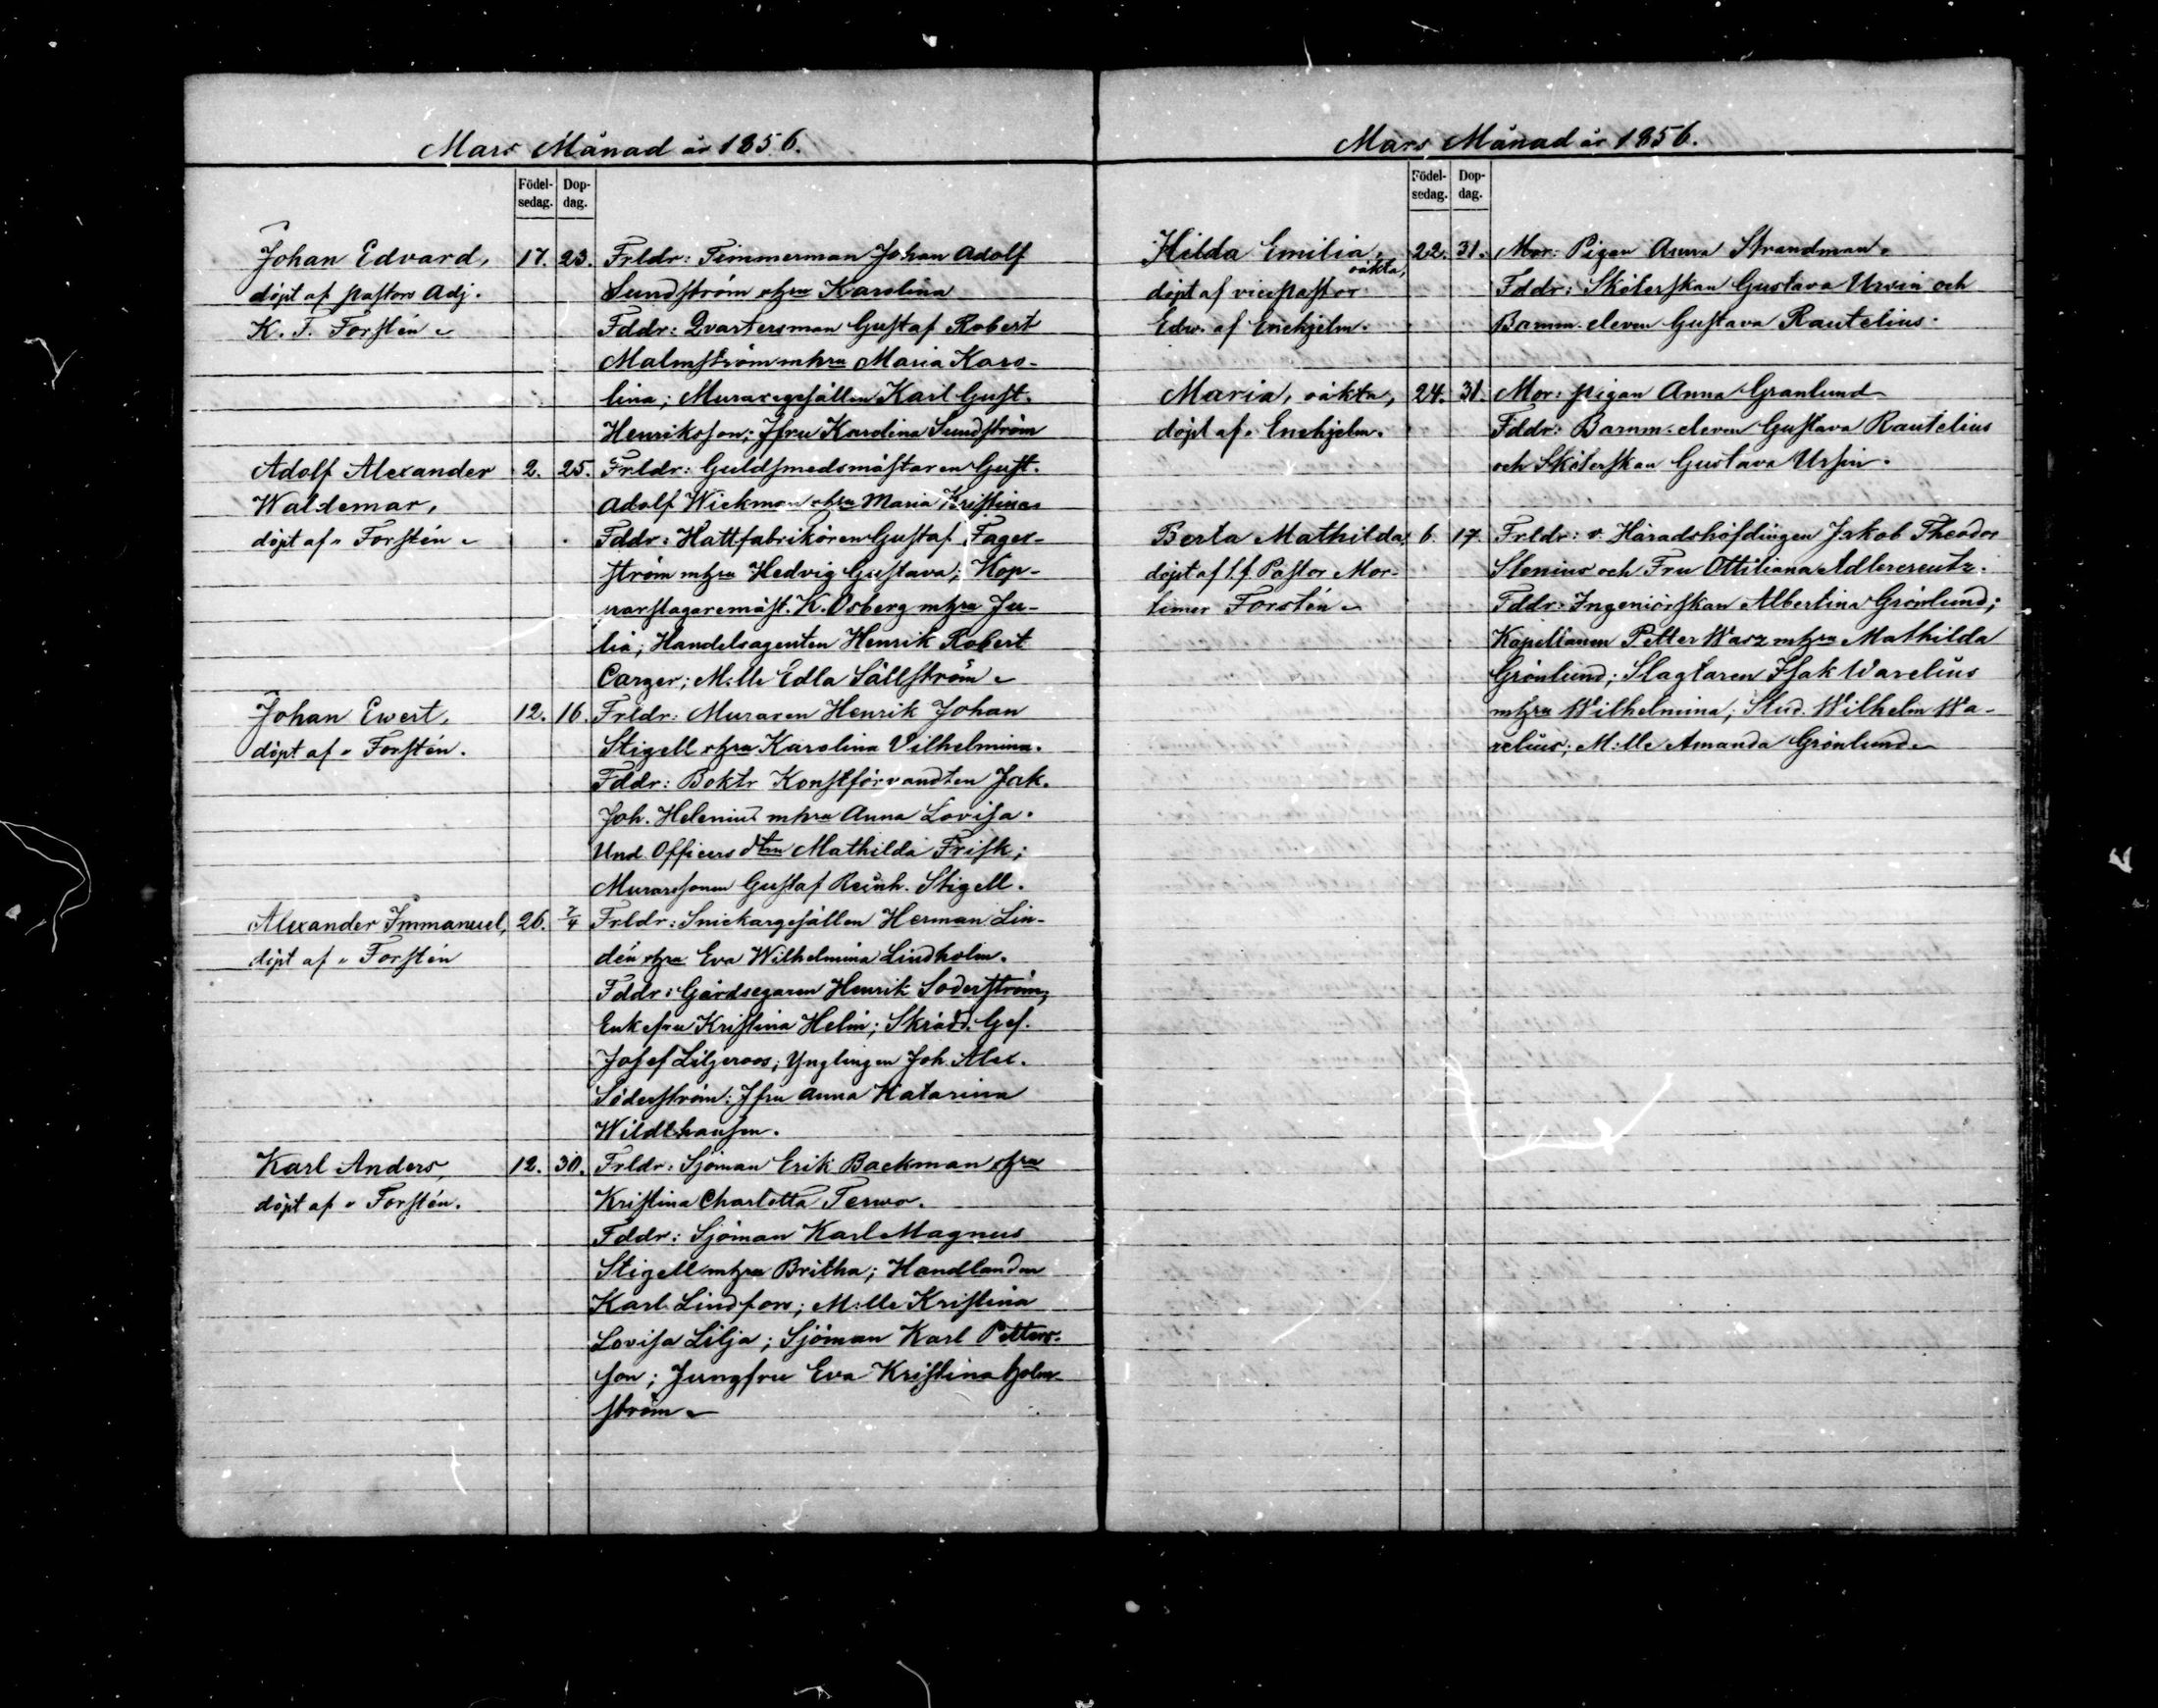 Mars Månad år 1856.
Födel-sedag. Dop-dag.
Johan Edvard, 17. 23. Frldr: Timmerman Johan Adolf
döpt af pastors Adj. Sundström o hru Karolina
K. T. Forstén Fddr: Qvartersman Gustaf Robert
Malmström m hru Maria Karo-
lina; Muraregesällen Karl Gust.
Henriksson; Jfru Karolina Sundström
Adolf Alexander 2. 25. Frldr: Guldsmedsmästaren Gust.
Waldemar, Adolf Wickman o hru Maria Kristina
döpt af " Forstén Fddr: Hattfabrikören Gustaf Fager-
ström m hru Hedvig Gustava; Kop-
parslagaremäst. K. Osberg m hru Ju-
lia; Handelsagenten Henrik Robert
Carger; M:lle Edla Sällström
Johan Ewert, 12. 16. Frldr: Muraren Henrik Johan
döpt af " Forstén. Stigell o hru Karolina Vilhelmina.
Fddr: Boktr Konstförvandten Jak.
Joh. Helenius m hru Anna Lovisa.
Und. Officers dtrn Mathilda Frisk;
Muraresonen Gustaf Reinh. Stigell.
Alexander Immanuel, 26. 7/4 Frldr: Snickargesällen Herman Lin-
döpt af " Forstén dén o hru Eva Wilhelmina Lindholm.
Fddr: Gårdsegaren Henrik Söderström;
Enkefru Kristina Helin; Skrädd. Ges.
Josef Liljeroos; Ynglingen Joh. Alex.
Söderström; Jfru Anna Katarina
Wildthausen.
Karl Anders, 12. 30. Frldr: Sjöman Erik Backman o hru
döpt af " Forstén. Kristina Charlotta Terwo.
Fddr: Sjöman Karl Magnus
Stigell m hru Britha; Handlanden
Karl Lindfors; M:lle Kristina
Lovisa Lilja; Sjöman Karl Petters-
son; Jungfru Eva Kristina Holm-
ström
Mars Månad år 1856.
Födel-sedag. Dop-dag.
Hilda Emilia, oäkta, 22. 31. Mor: Pigan Anna Strandman.
döpt af vicepastor Fddr: Sköterskan Gustava Ursin och
Edw. af Enehjelm. Barnm. eleven Gustava Rautelius.
Maria, oäkta, 24. 31. Mor: pigan Anna Granlund
döpt af " Enehjelm. Fddr: Barnm. eleven Gustava Rautelius
och Sköterskan Gustava Ursin.
Berta Mathilda, 6. 17. Frldr: v. Häradshöfdingen Jakob Theodor
döpt af t.f. Pastor Mor- Stenius och Fru Ottiliana Adlercreutz.
timer Forstén Fddr: Ingeniörskan Albertina Grönlund;
Kapellanen Petter Wasz m hru Mathilda
Grönlund; Slagtaren Isak Warelius
m hru Wilhelmina; Stud. Wilhelm Wa-
relius; M:lle Amanda Grönlund